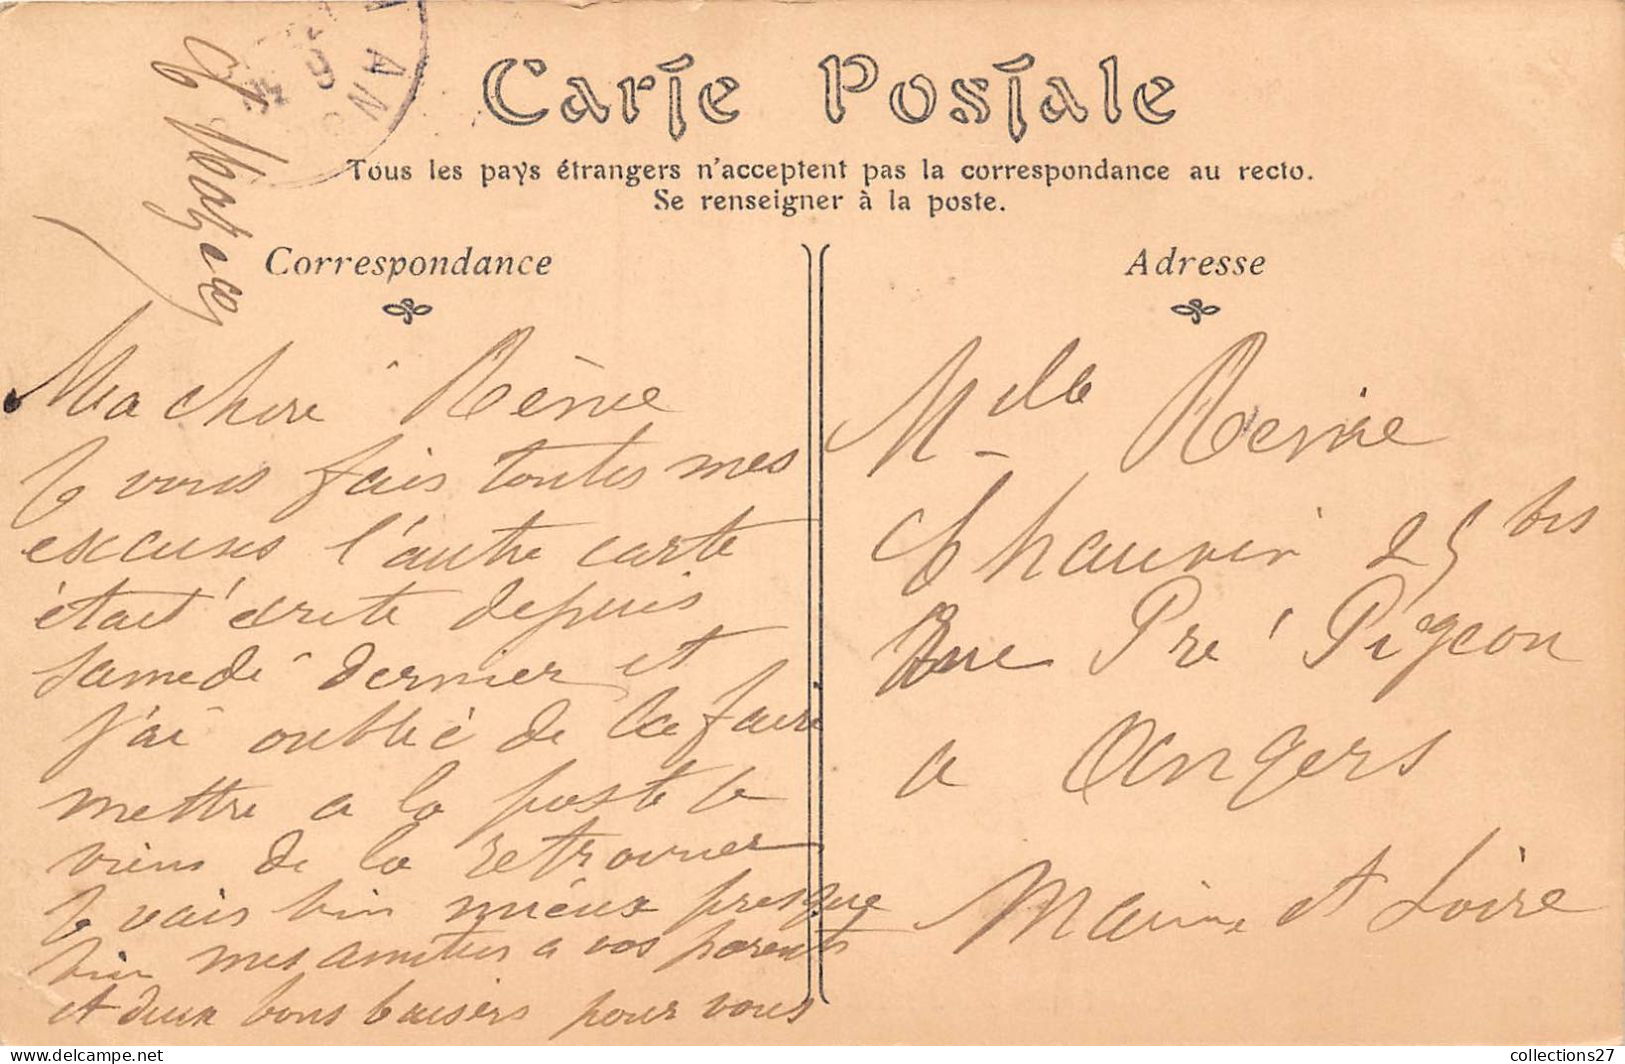 Carte Postale
Tous les pays étrangers n'acceptent pas la correspondance au recto.
Se renseigner à la poste.
Correspondance
Ma chere Rènée
Je vous fais toutes mes
excuses l'autre carte
était écrite depuis
samedi dernier et
j'ai oublié de la faire
mettre a la poste je
viens de la retrouver
Je vais bien mieux presque
bien mes amities a vos parents
et deux bons baisers pour vous
Adresse
Mdlle Renée
Chauvin 25 bis
Rue Pré Pigeon
a Angers
Maine et Loire
collections27